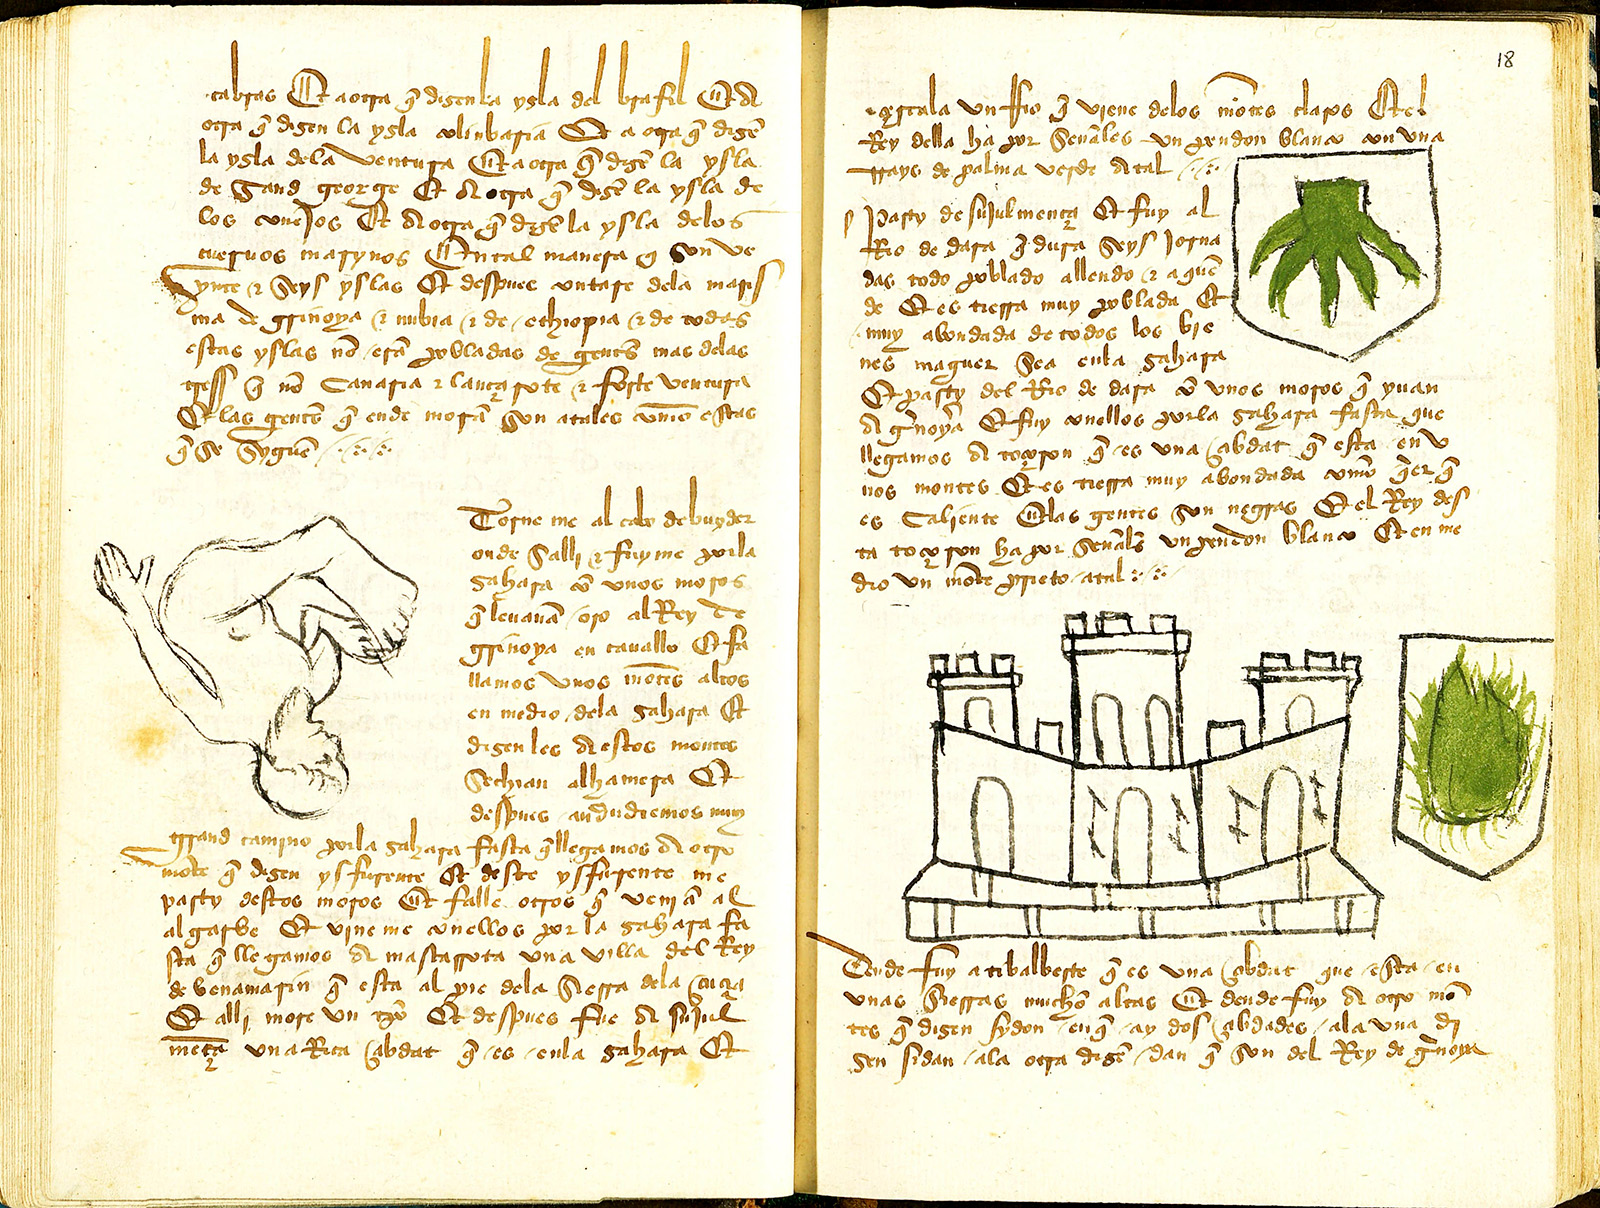 cabras Et a otra q̃ dizen la ysla del brasil Et A
otra q̃ dizen la ysla colunbaria Et a otra q̃ dizẽ
la ysla dela ventura Et a otra q̃ dizẽ la ysla
de Sand george Et A otra q̃ dizẽ la ysla de
los conejos Et A otra q̃ dizẽ la ysla delos
cueruos marynos En tal manera q̃ son ve
ynte & seys yslas Et despues contare dela maris
ma de gujnoya & nubia & de ethiopia & de todas
estas yslas nõ erã pobladas de gentes mas delas
tress q̃ nõ Canaria & lançarote & forte ventura
Et las gentes q̃ ende morã son atales com̃o estas
q̃ se syguẽ
Torne me al cabo de buyder
onde Salli & fuy me por la
zahara cõ unos moros
q̃ leuauã oro al Rey de
gujnoya en cauallo Et fa
llamos unos mõtes altos
en medio dela zahara Et
dizen les A estos montes
sechian alhamera Et
despues andudiemos muy
grrand camjno por la zahara fasta q̃ llegamos A otro
mõte q̃ dizen ysfurente Et deste ysfurente me
party destos moros Et falle otros q̃ venjã al
algarbe Et vjne me conellos por la zahara fa
sta q̃ llegamos A mascarota una villa del Rey
de benamarin q̃ esta al pie dela Sierra dela
Et allj more un Et despues fue A sujul
mença una Rica çibdat q̃ es en la zahara Et
18
çercala un Rio q̃ vjene delos mõtes claros Et el
Rey della ha por señales un pendon blanco con una
rrayz de palma verde Atal
Party de sujulmença Et fuy al
Rio de dara q̃ dura seys jorna
das todo poblado allende & aquẽ
de Et es tierra muy poblada Et
muy abondada de todos los bie
nes maguer sea en la zahara
Et party del Rio de dara cõ unos moros q̃ yuan
A gujnoya Et fuy conellos por la zahara fasta que
llegamos A tocoron q̃ es una çibdat q̃ esta en v
nos montes Et es tierra muy abondada com̃o q̃er q̃
es caliente Et las gentes son negras Et el Rey des
ta tocoron ha por señales un pendon blanco Et en me
dio un mõte prieto atal
Dende fuy a tibalbeste q̃ es una çibdat que esta en
unas sierras mucho altas Et dende fuy A otro mõ
tes q̃ dizen sydon en q̃ ay dos çibdades ala una dj
zen sidan ala otra dizẽ dan q̃ son del Rey de gujnoya